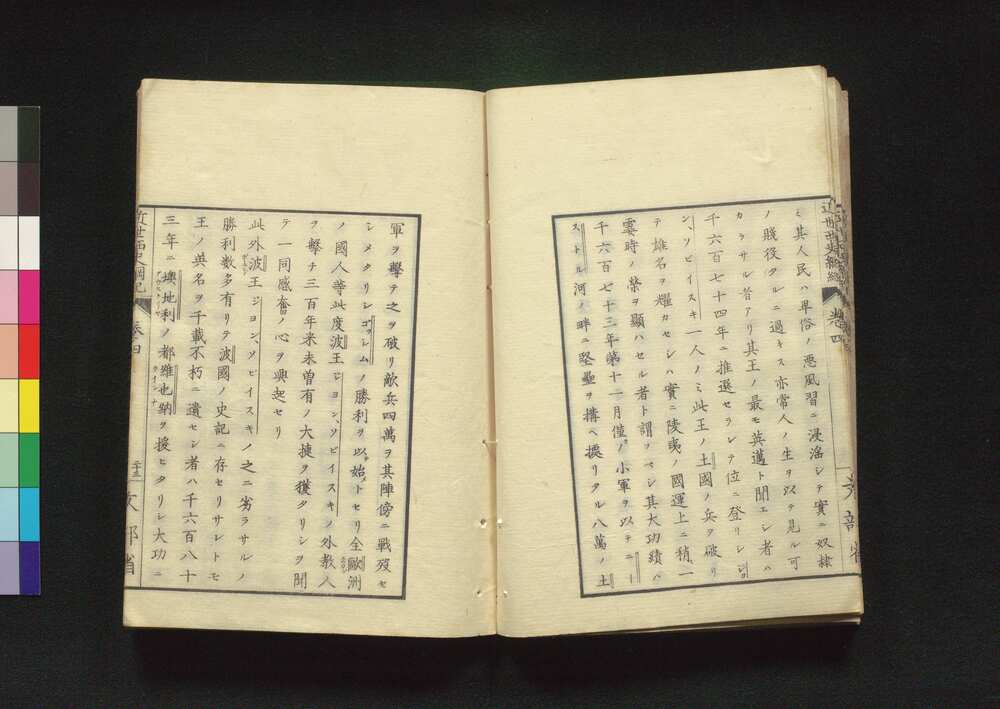 ミ其人民ハ卑俗ノ悪風習ニ浸淫シテ實ニ奴隷
ノ賤役タルニ過キス亦常人ノ生ヲ以テ見ル可
カラサル者アリ其王ノ最モ英邁ト聞エシ者ハ
千六百七十四年ニ推選セラレテ位ニ登リシ
ン、ソビイスキ一人ノミ此王ノ土國ノ兵ヲ破リ
テ雄名ヲ耀カセシハ實ニ陵夷ノ國運上ニ稍一
霎時ノ榮ヲ顯ハセル者ト謂フベシ其大功績ハ
千六百七十三年第十一月僅ノ小軍ヲ以テニー
ストル河ノ畔ニ堅壘ヲ搆ヘ據リタル八萬ノ土
卷四
軍ヲ擊テ之ヲ破リ敵兵四萬ヲ其陣傍ニ戰歿セ
シメタリシコッレムノ勝利ヲ以始トセリ全歐洲
ノ國人等此度波王ジヨン、ソビイスキノ外教人
ヲ擊チ三百年来未曽有ノ大捷ヲ獲タリシヲ聞
テ一同感奮ノ心ヲ興起セリ
此外波王ジヨン、ソビイスキノ之ニ劣ラサルノ
勝利数多有リテ波國ノ史記ニ存セリサレトモ
王ノ英名ヲ千載不朽ニ遺セシ者ハ千六百八十
三年ニ墺地利ノ都維也納ヲ援ヒタリシ大功ニ
近世西史綱紀
卷四
文部省